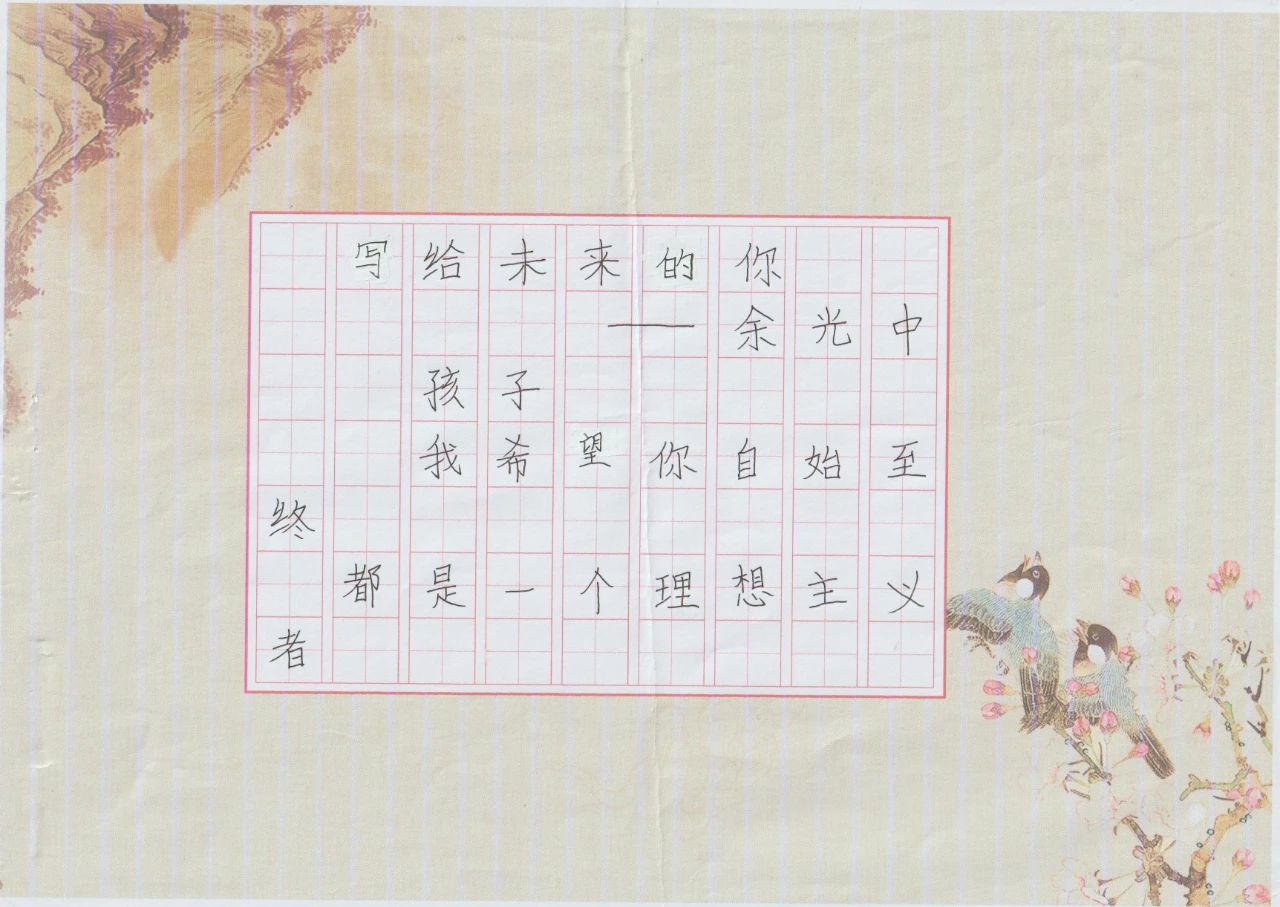 写给未来的你
——余光中
孩子
我希望你自始至
终
都是一个理想主义
者